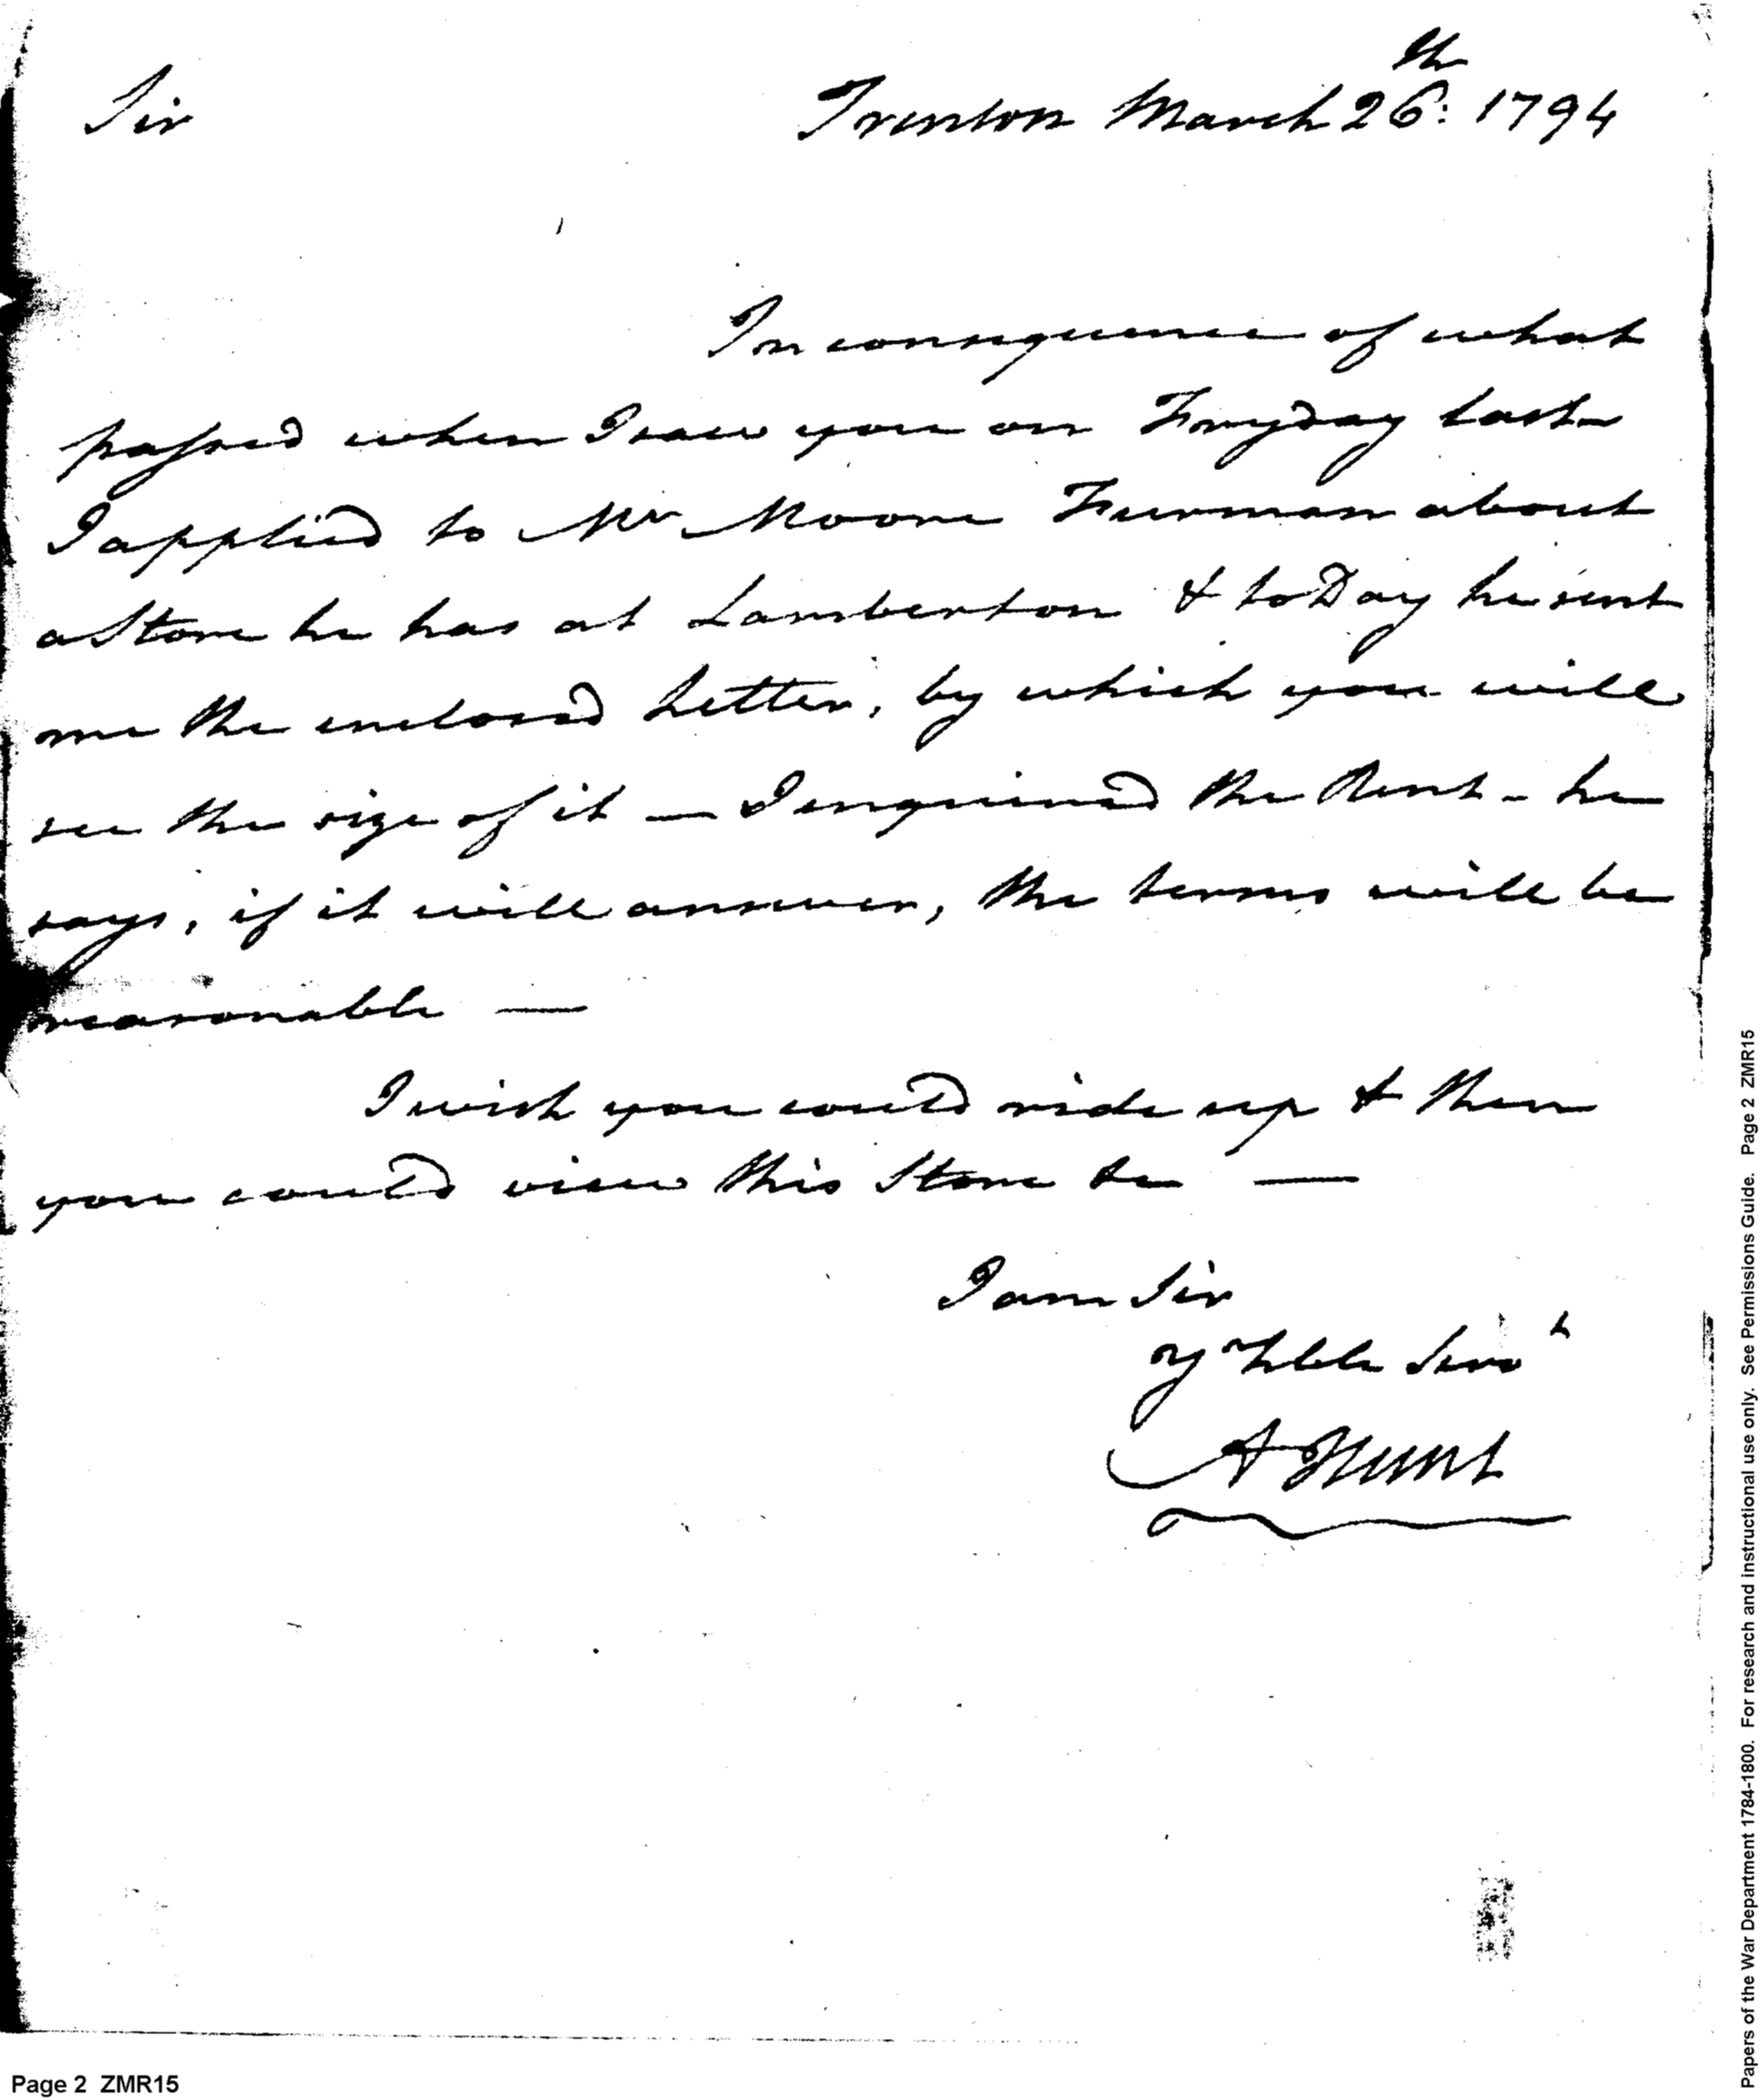 Sir
Trenton March 26th: 1794
In consequence of what
passed when I saw you on Fryday last
I applied to Mr Moore Furman about
a Store he has at Lamberton & to Day he sent
me the enclosed Letter, by which you will
see the size of it — I enquired the Rent - he
says, if it will answer, the terms will be
reasonable —
I wish you could ride up & then
you could view this Store &c —
I am Sir
yr Hble Servt
A Hunt
Page 2 ZMR15
Papers of the War Department 1784-1800. For research and instructional use only. See Permissions Guide. Page 2 ZMR15